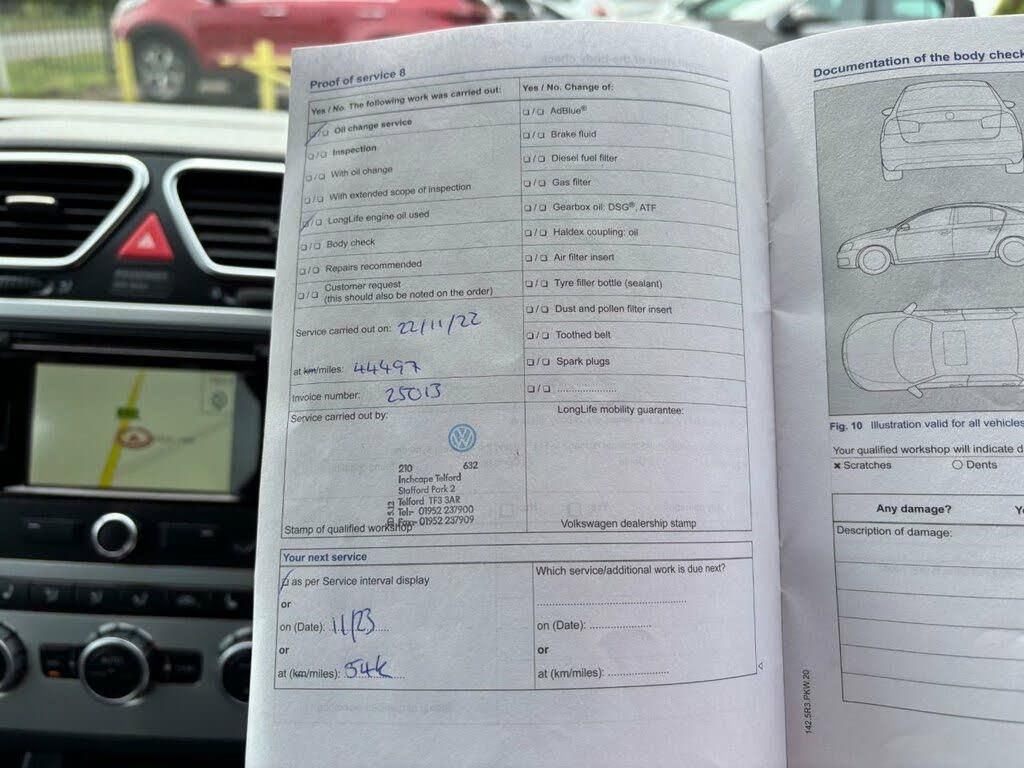 Proof of service 8
Yes / No. The following work was carried out:
/ Oil change service
/ Inspection
/ With oil change
/ With extended scope of inspection
/ LongLife engine oil used
/ Body check
/ Repairs recommended
/ Customer request
(this should also be noted on the order)
Service carried out on: 22/11/22
at km/miles: 44497
Invoice number: 25013
Service carried out by:
210 632
Inchcape Telford
Stafford Park 2
Telford TF3 3AR
Tel:- 01952 237900
Fax:- 01952 237909
Stamp of qualified workshop
Yes / No. Change of:
/ AdBlue®
/ Brake fluid
/ Diesel fuel filter
/ Gas filter
/ Gearbox oil: DSG®, ATF
/ Haldex coupling: oil
/ Air filter insert
/ Tyre filler bottle (sealant)
/ Dust and pollen filter insert
/ Toothed belt
/ Spark plugs
/ ....................
LongLife mobility guarantee:
Volkswagen dealership stamp
Your next service
as per Service interval display
or
on (Date): 11/23
or
at (km/miles): 54k
Which service/additional work is due next?
on (Date): ....................
or
at (km/miles): ....................
142.5R3.PKW.20
Documentation of the body check
Fig. 10 Illustration valid for all vehicles
Your qualified workshop will indicate d
× Scratches ○ Dents
Any damage? Y
Description of damage: